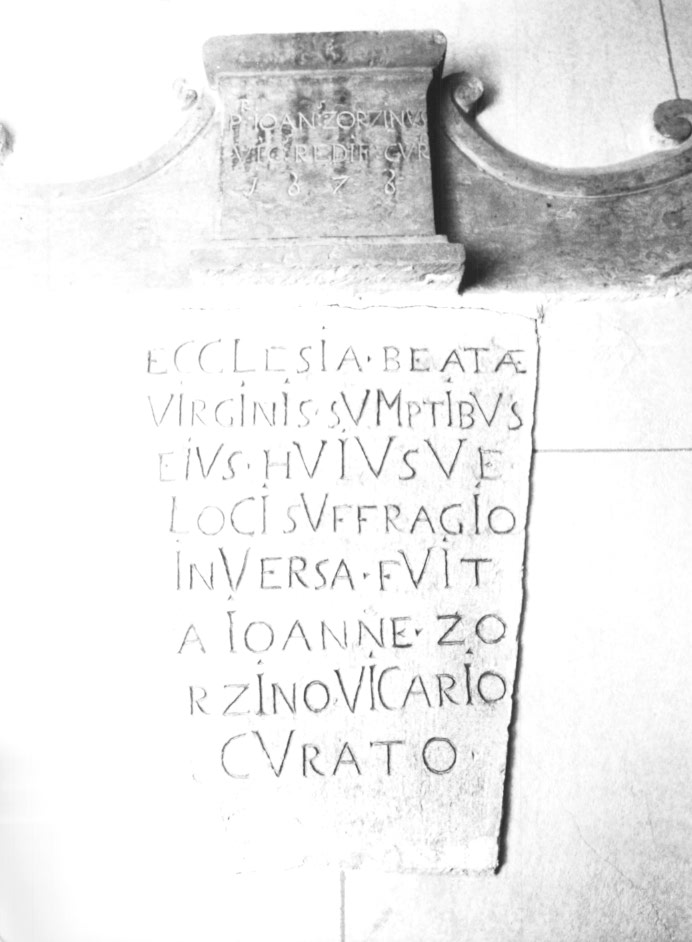 P. IOAN ZORZINVS
REDIF CVR
1678
ECCLESIA·BEATÆ
VIRGINIS·SVMPTIBVS
EIVS·HVIVSVE
LOCI SVFFRAGIO
INVERSA·FVIT
A IOANNE·ZO
RZINO·VICARIO
CVRATO·